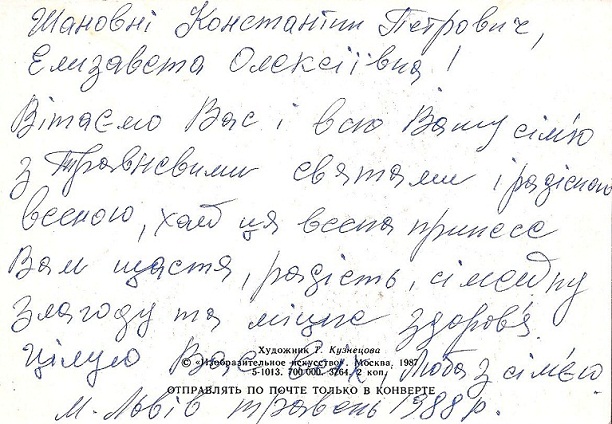 Шановні Константин Петрович,
Елизавета Олексіївна!
Вітаємо Вас і всю Вашу сім'ю
з Травневими святами і радісною
весною, хай ця весна принесе
Вам щастя, радість, сімейну
злагоду та міцне здоров'я.
Художник Т. Кузнецова
© «Изобразительное искусство». Москва, 1987
5-1013. 700 000. 3764. 2 коп.
Цілую Вас Люба з сім'єю
ОТПРАВЛЯТЬ ПО ПОЧТЕ ТОЛЬКО В КОНВЕРТЕ
М. Львів травень 1988 р.